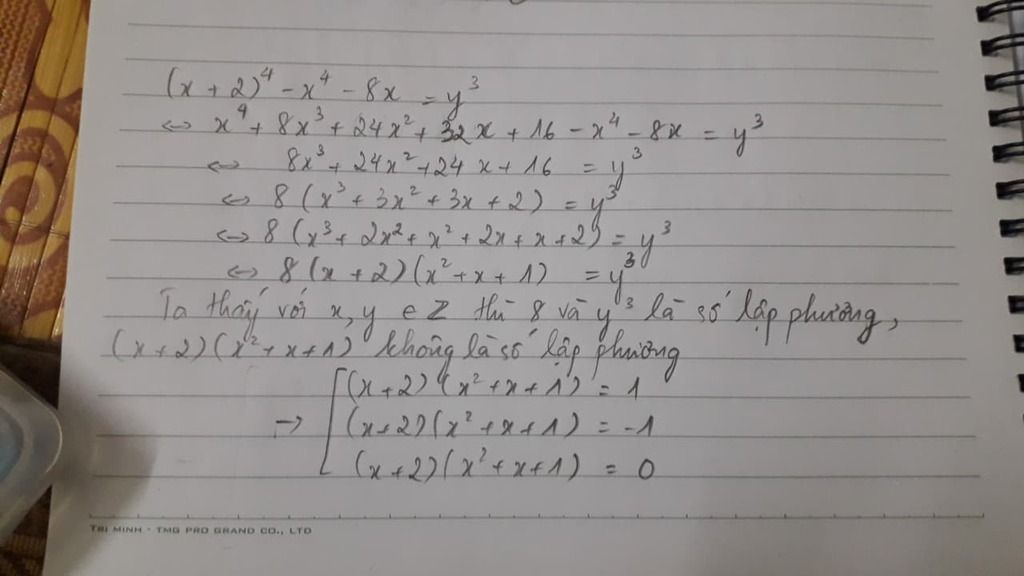 (x + 2)⁴ - x⁴ - 8x = y³
⇔ x⁴ + 8x³ + 24x² + 32x + 16 - x⁴ - 8x = y³
⇔ 8x³ + 24x² + 24x + 16 = y³
⇔ 8 (x³ + 3x² + 3x + 2) = y³
⇔ 8 (x³ + 2x² + x² + 2x + x + 2) = y³
⇔ 8 (x + 2)(x² + x + 1) = y³
Ta thấy với x, y ∈ Z thì 8 và y³ là số lập phương,
(x + 2)(x² + x + 1) không là số lập phương
(x + 2)(x² + x + 1) = 1
→ [ (x + 2)(x² + x + 1) = -1
(x + 2)(x² + x + 1) = 0
TRI MINH - TMG PRO GRAND CO., LTD